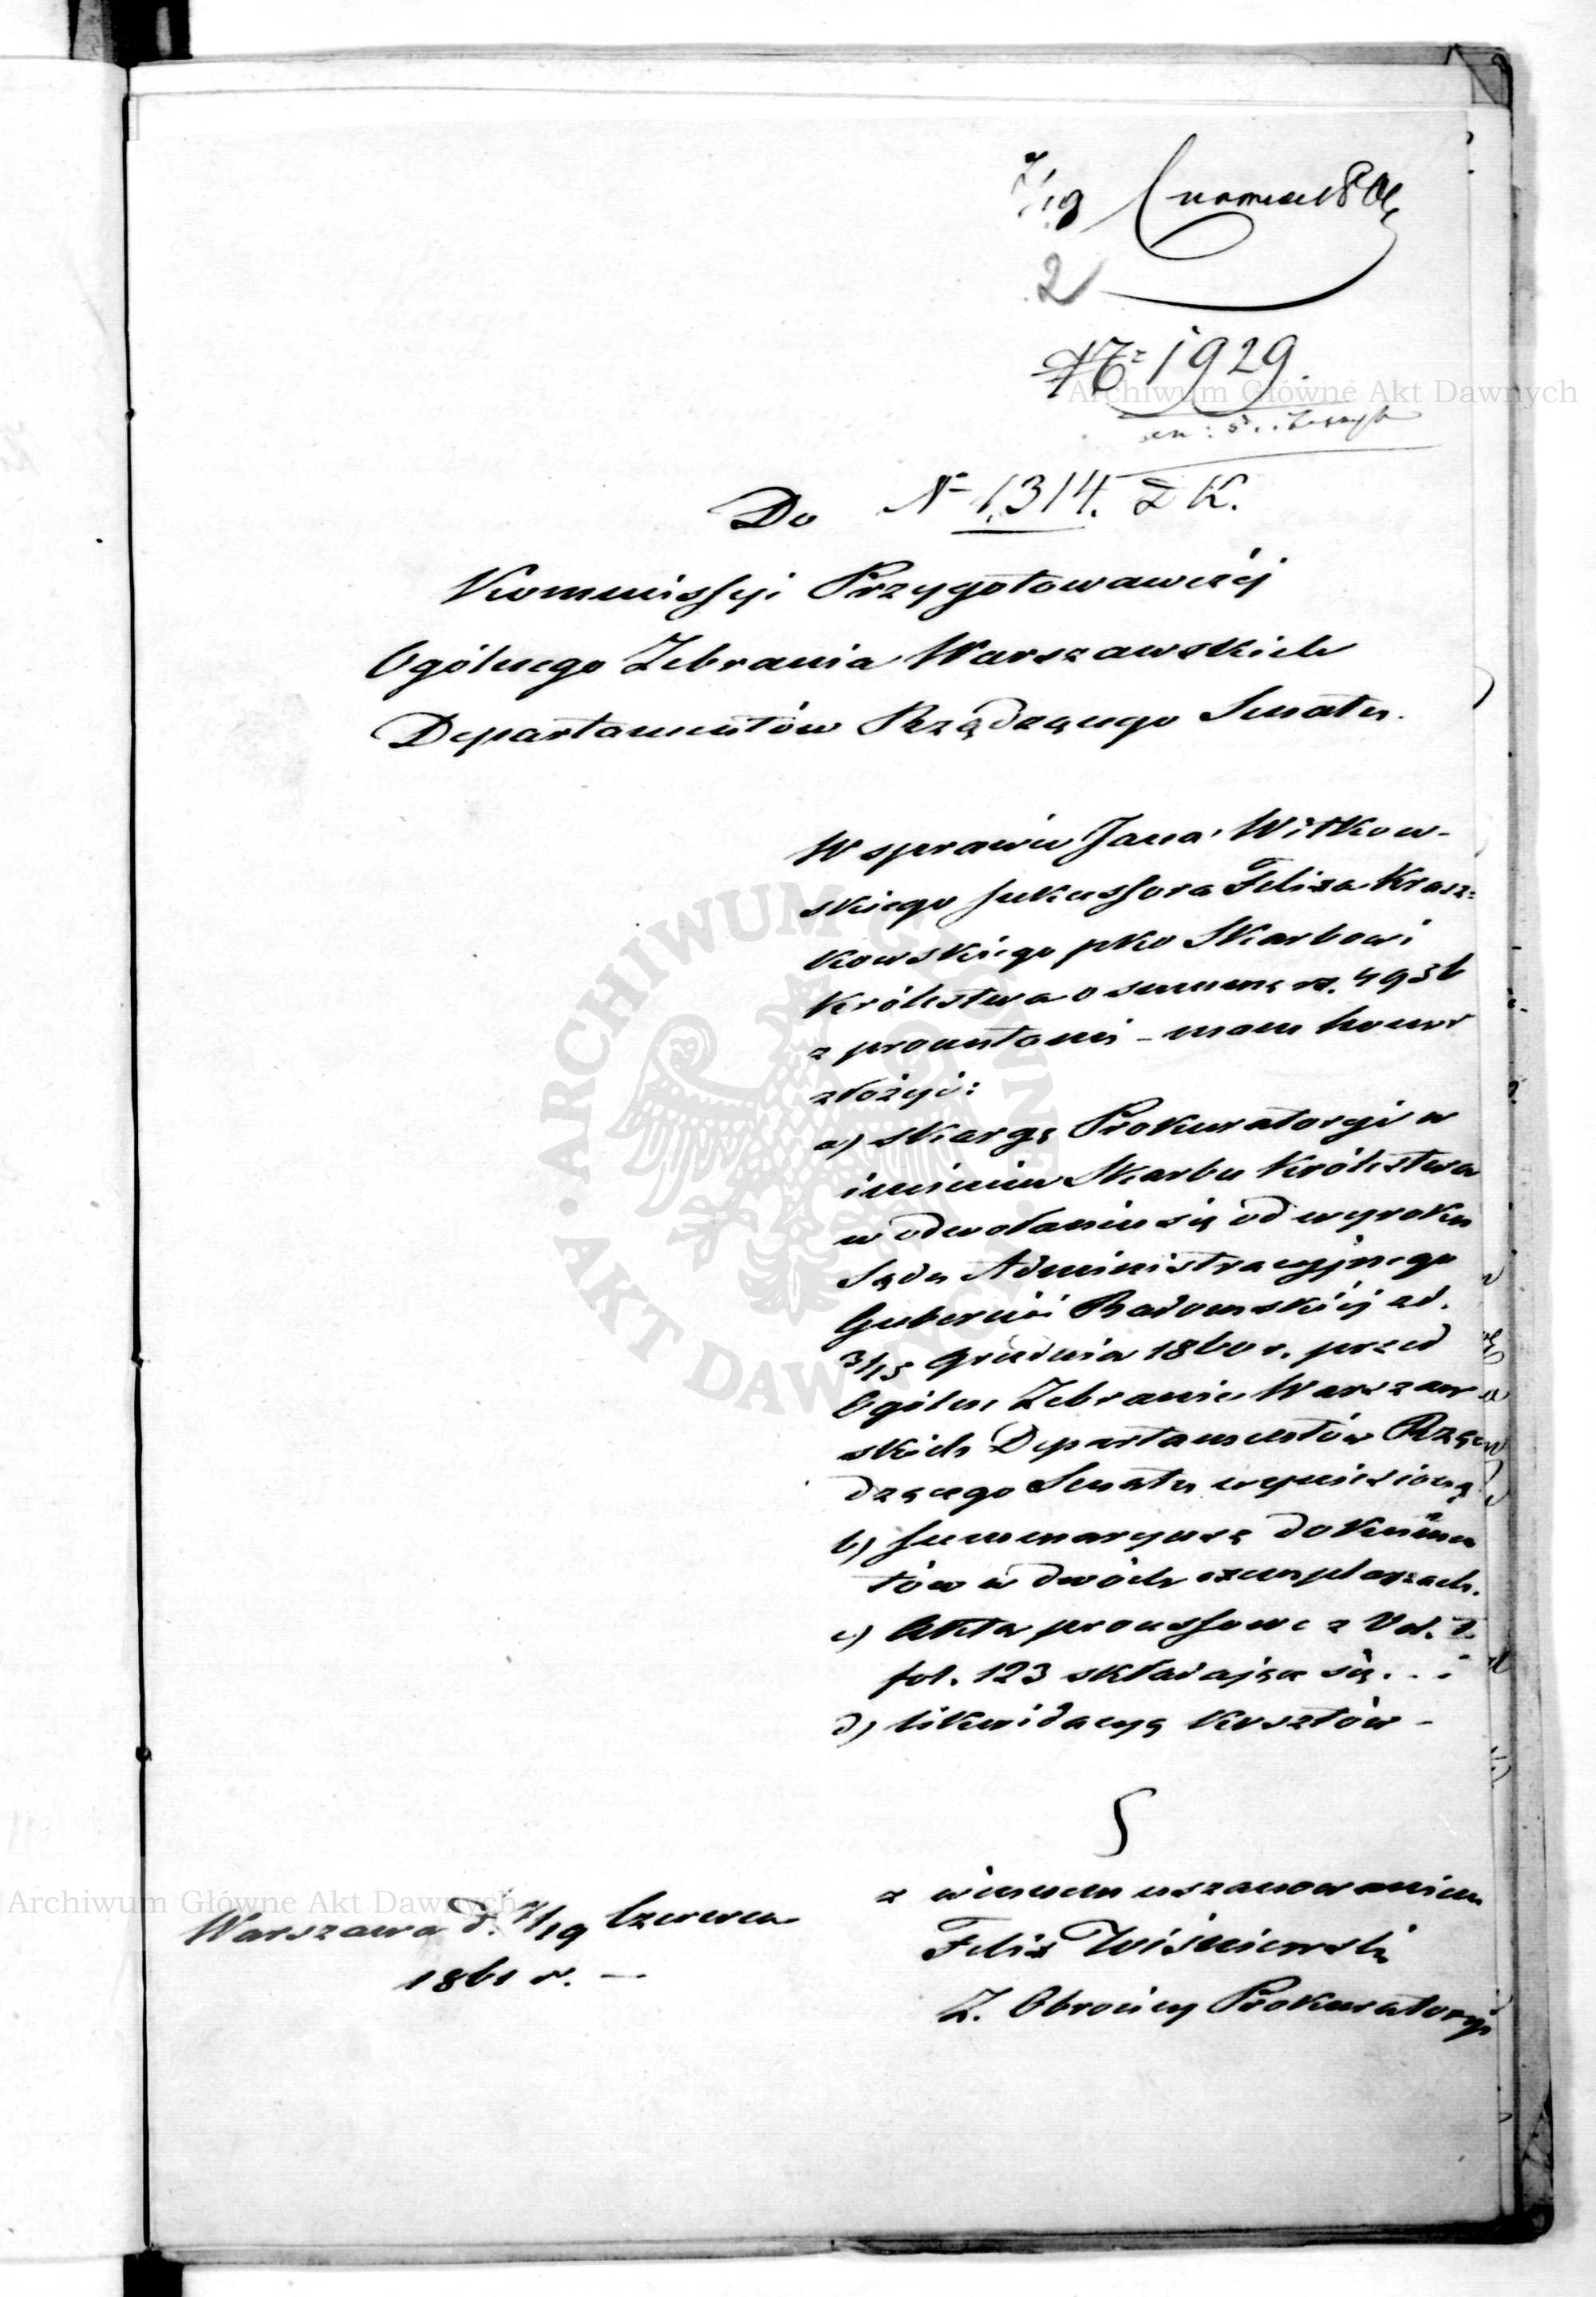 7/19 Czerwca 1861
2
№ 1929.
Archiwum Główne Akt Dawnych
Do № 1314. Z K.
Kommissyi Przygotowawczéj
Ogólnego Zebrania Warszawskich
Departamentów Rządzącego Senatu.
W sprawie Jana Witkow-
skiego sukcessora Felixa Krasz=
kowskiego pko Skarbowi
Królestwa o summę rs. 4936
z procentami – mam honor
złożyć:
a) skargę Prokuratoryi w
imieniu Skarbu Królestwa
w odwołaniu się od wyroku
Sądu Administracyjnego
Gubernii Radomskiéj z d.
3/15 Grudnia 1860 r. przed
Ogólne Zebranie Warszaw
skich Departamentów Rzą
dzącego Senatu wyniesioną
b) summaryusz dokumen
tów w dwóch exemplarzach.
c) Akta processowe z Vol. 1.
fol. 123 składające się . . i
d) likwidacyą kosztów –
z winnem uszanowaniem
Archiwum Główne Akt Dawnych
Warszawa d. 7/19 Czerwca
1861 r. –
Felix Wiśniewski
Z. Obrońcy Prokuratoryi
ARCHIWUM GŁÓWNE · AKT DAWNYCH ·